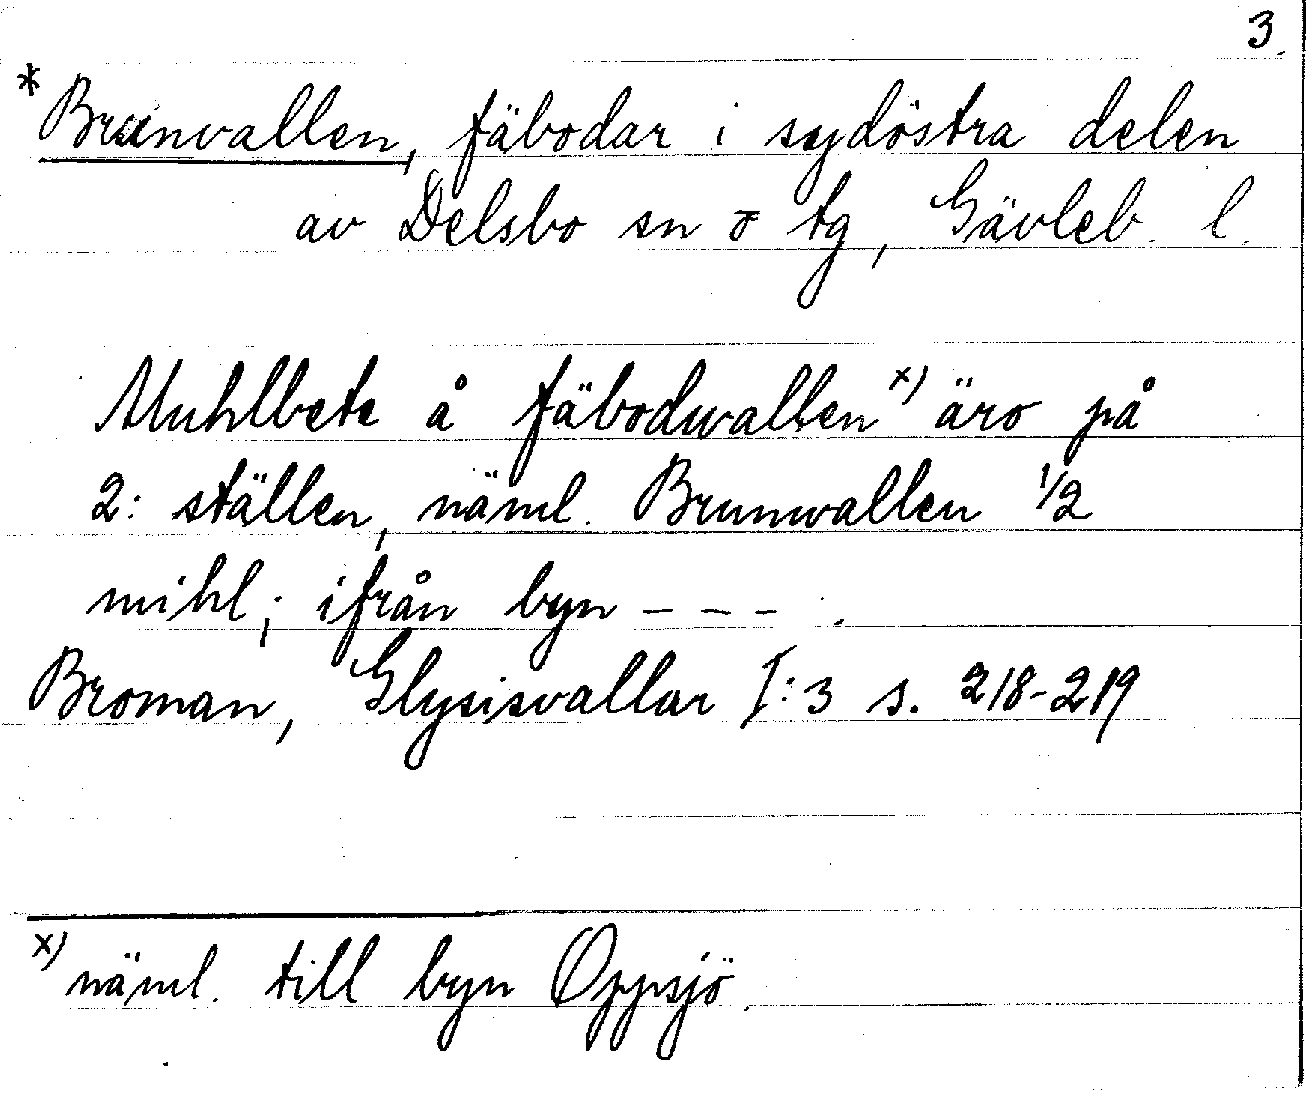 3.
* Brunvallen, fäbodar i sydöstra delen
av Delsbo sn o tg, Gävleb. l.
Muhlbete å fäbodwallen x) äro på
2: ställen, näml. Brunwallen 1/2
mihl; ifrån byn - - - .
Broman, Glysisvallar I:3 s. 218-219
x) näml. till byn Oppsjö.